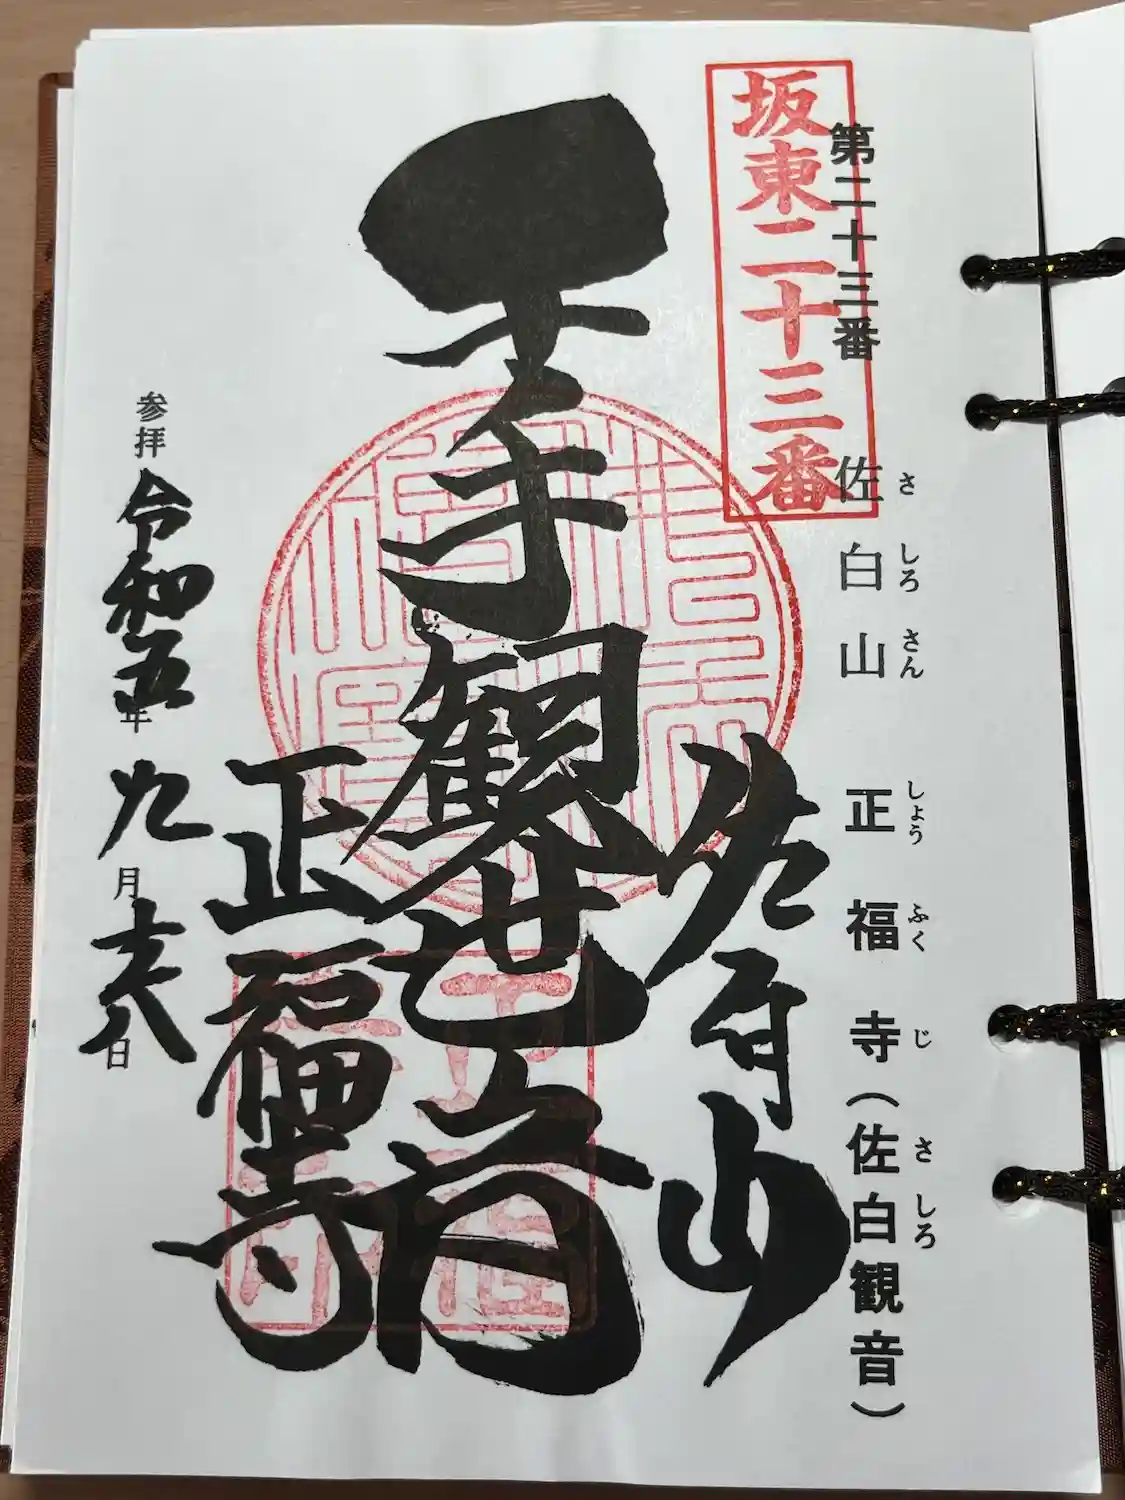 第二十三番
佐白山 正福寺(佐白観音)
さしろさん しょうふくじ さしろ
坂東二十三番
佐白山
千手観世音
正福寺
参拝 令和五年 九月 十八日